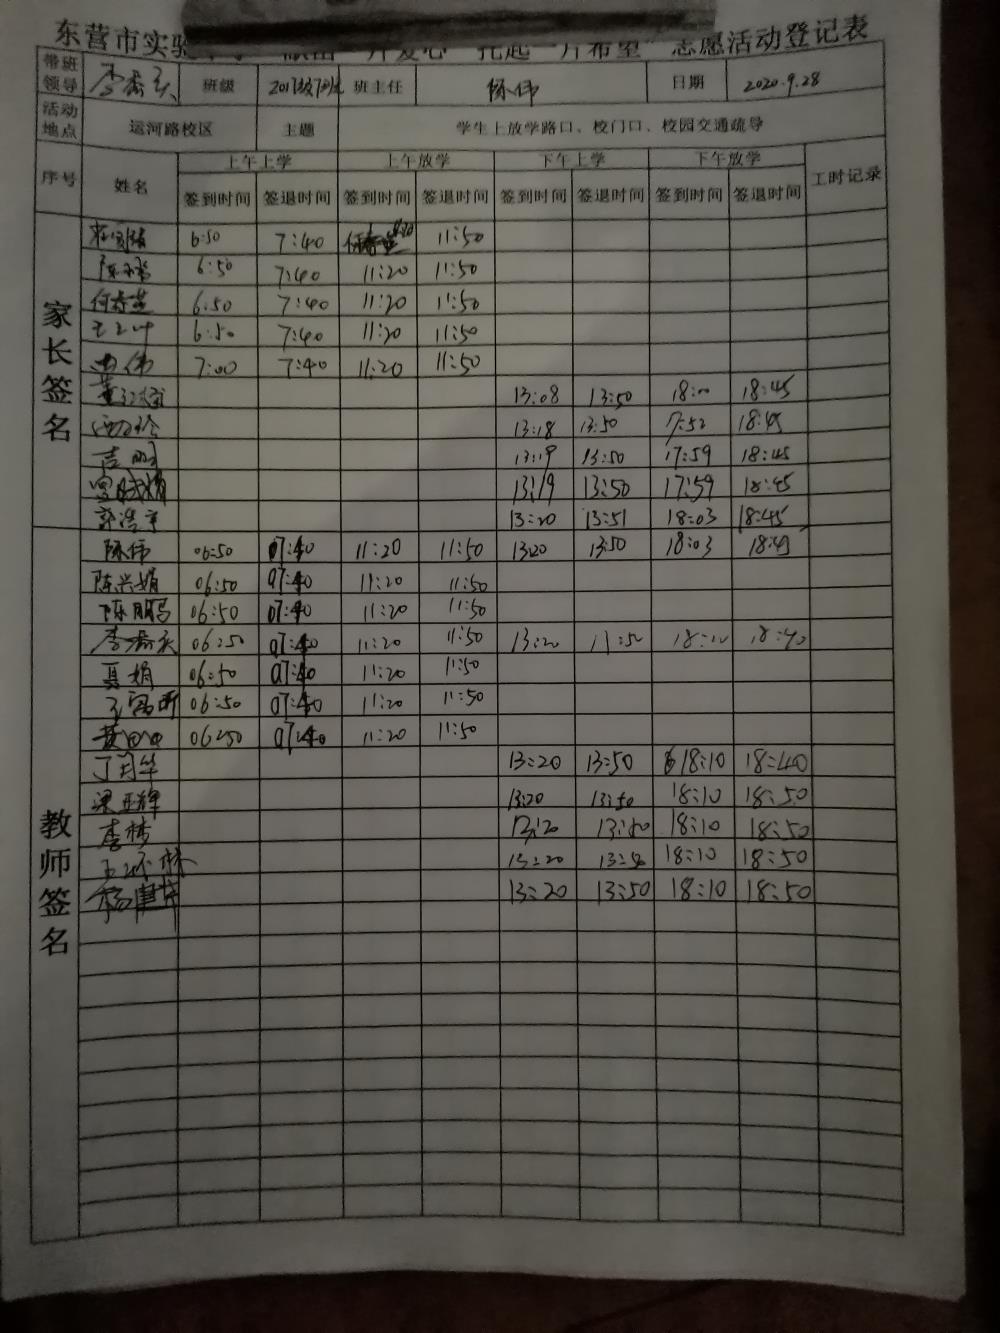 东营市实验 一片爱心 托起一片希望"志愿活动登记表
带班领导 李秀兵 班级 2017级7班 班主任 陈伟 日期 2020.9.28
活动地点 运河路校区 主题 学生上放学路口、校门口、校园交通疏导
序号 姓名 上午上学 上午放学 下午上学 下午放学 工时记录
签到时间 签退时间 签到时间 签退时间 签到时间 签退时间 签到时间 签退时间
家长签名
6:50 7:40 11:50
6:50 7:40 11:20 11:50
何春芝 6:50 7:40 11:20 11:50
6:50 7:40 11:20 11:50
曲伟 7:00 7:40 11:20 11:50
13:08 13:50 18:00 18:45
13:18 13:50 7:52 18:45
吉明 13:19 13:50 17:59 18:45
13:19 13:50 17:59 18:45
郭浩宇 13:20 13:51 18:03 18:45
教师签名
陈伟 06:50 07:40 11:20 11:50 13:20 13:50 18:03 18:45
陈兴娟 06:50 07:40 11:20 11:50
陈鹏 06:50 07:40 11:20 11:50
06:50 07:40 11:20 11:50 13:20 18:10 18:40
夏娟 06:50 07:40 11:20 11:50
06:50 07:40 11:20 11:50
黄田田 06:50 07:40 11:20 11:50
丁月华 13:20 13:50 18:10 18:40
梁亚辉 13:20 13:50 18:10 18:50
李梦 13:20 13:50 18:10 18:50
13:20 13:50 18:10 18:50
杨 13:20 13:50 18:10 18:50